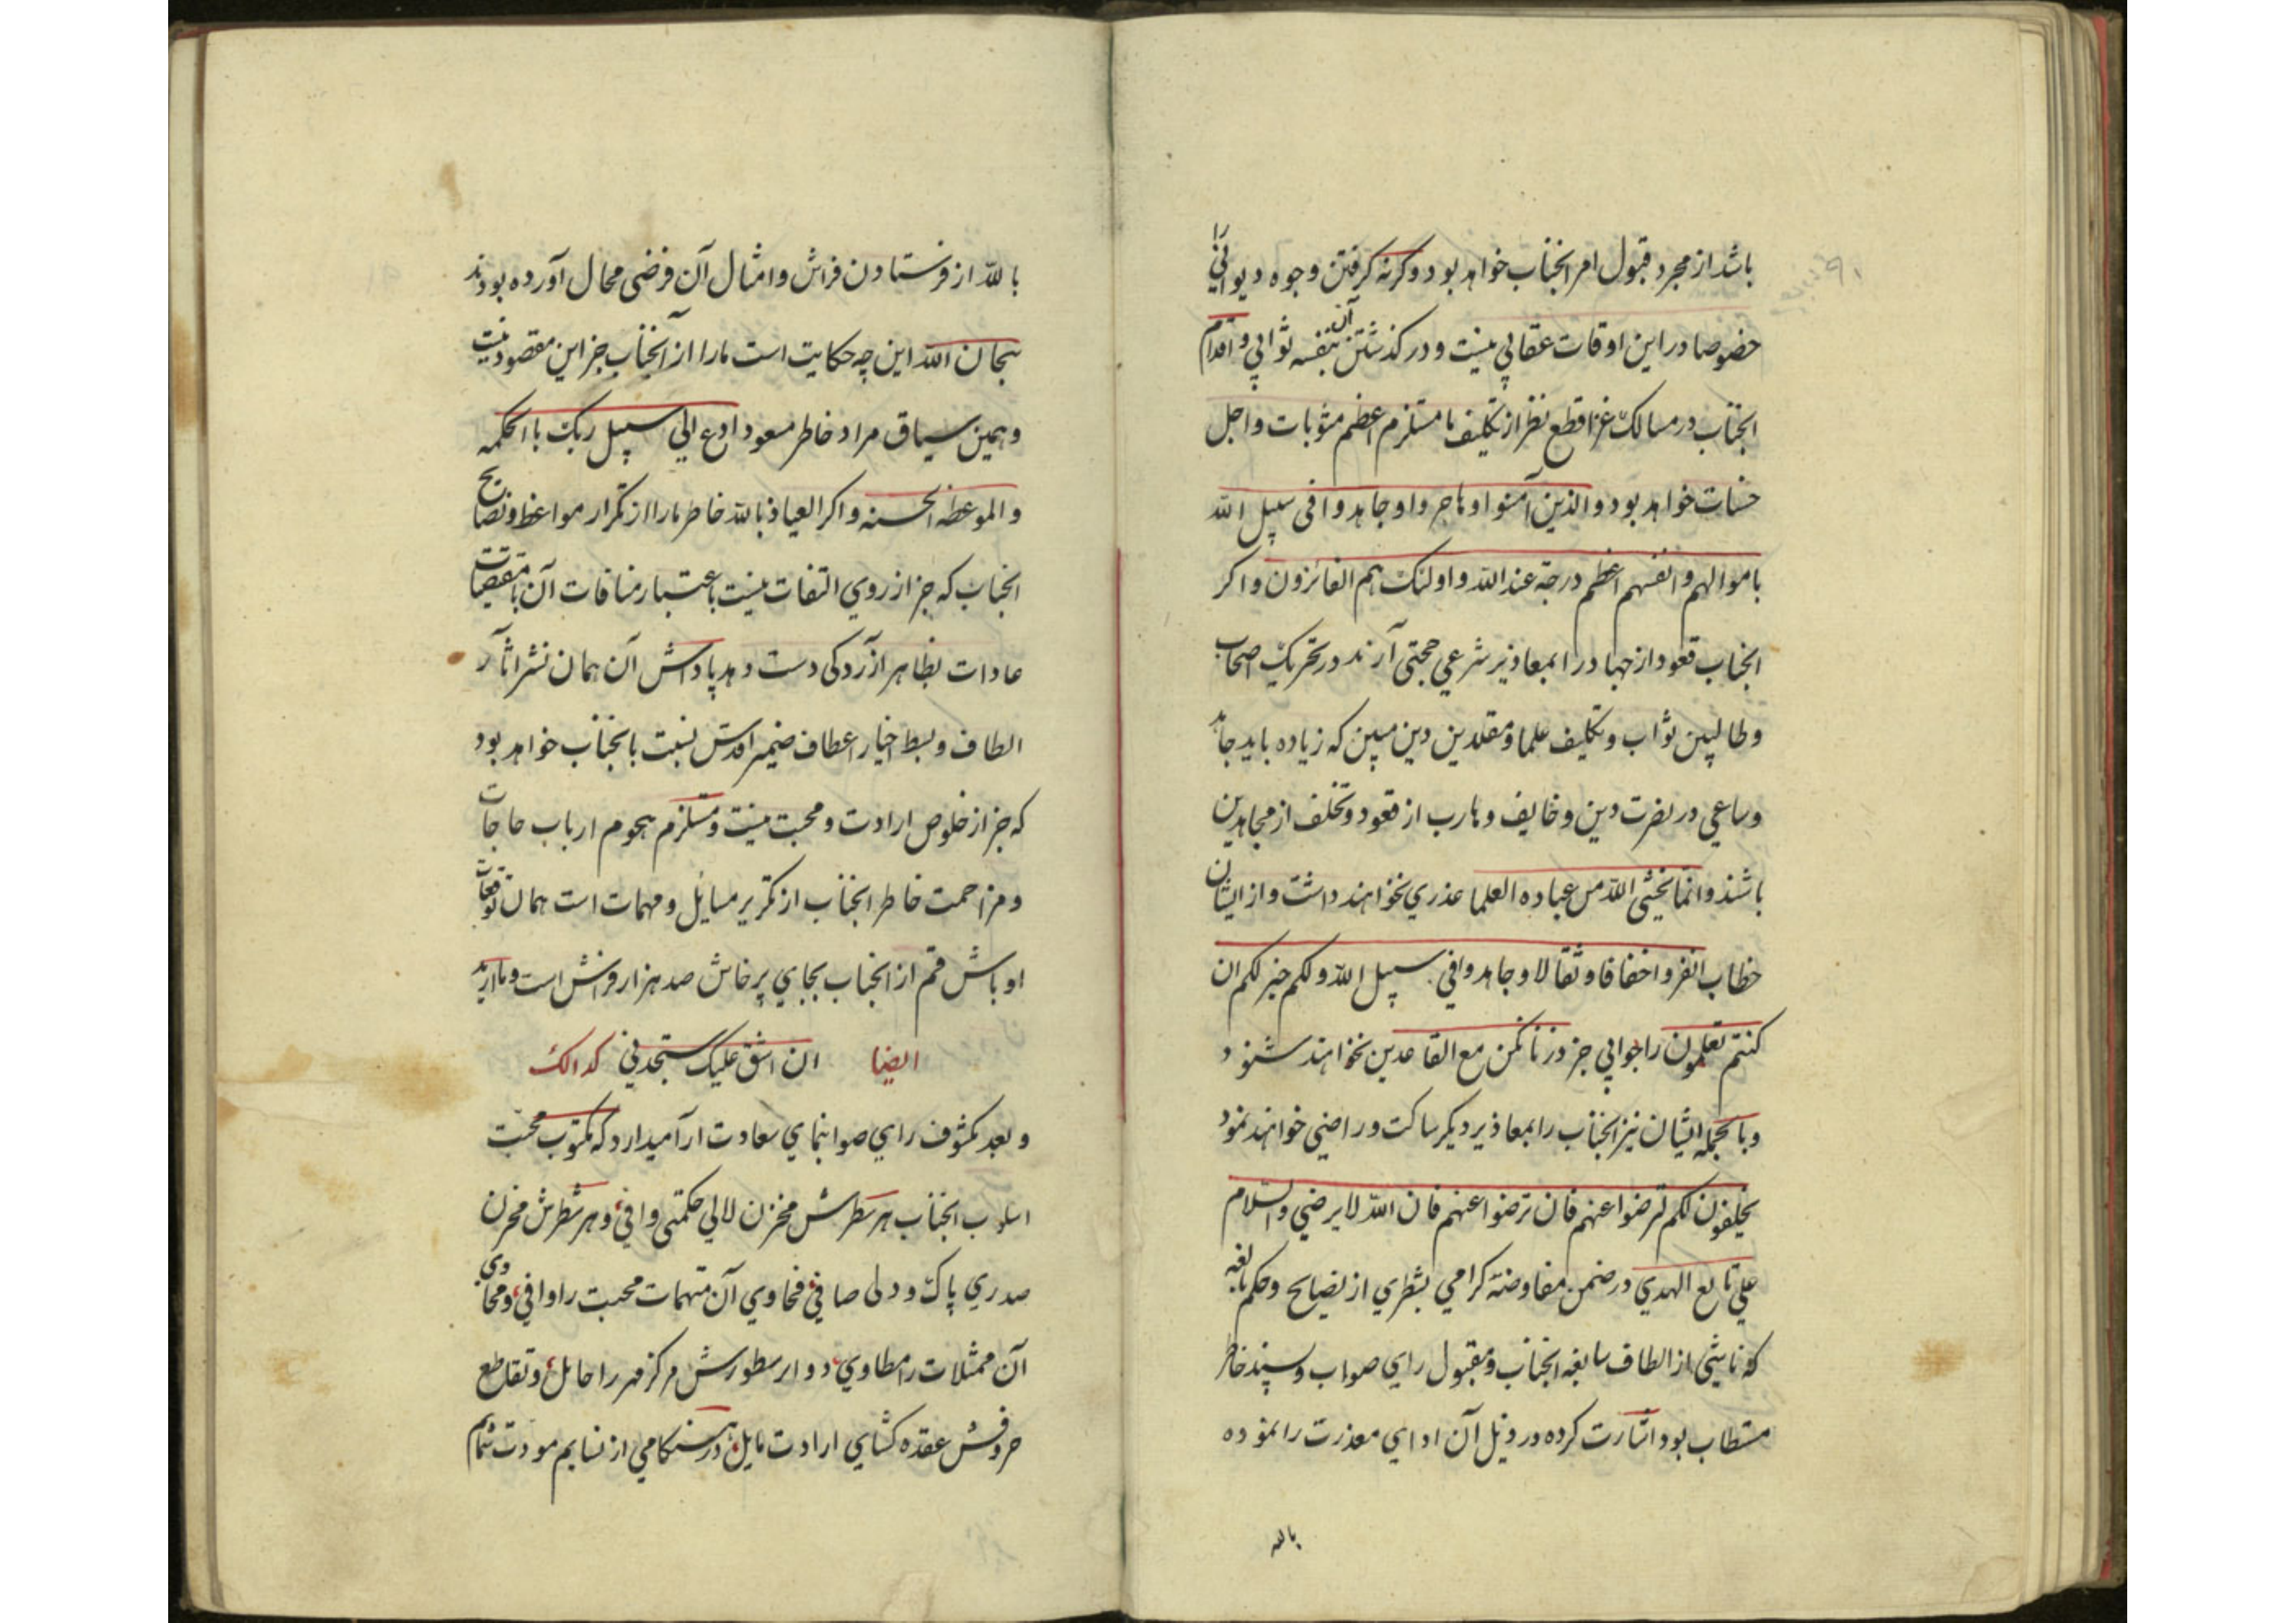 باشد از مجرد قبول امر انجناب خواهد بود و کرنه کرفتن وجوه دیوانی را
خصوصا در این اوقات عقابی نیست و در کذشتن آن بنفسه ثوابی و اقدام
انجناب در مسالک غزا قطع نظر از تکلیف ما مستلزم اعظم مثوبات و اجل
حسنات خواهد بود والذین آمنوا وهاجروا وجاهدوا فی سبیل الله
باموالهم وانفسهم اعظم درجة عند الله واولئک هم الفائزون و اکر
انجناب قعود از جهاد را بمعاذیر شرعی حجتی آرند در تحریک اصحاب
و طالبین ثواب و تکلیف علما و مقلدین دین مبین که زیاده باید جاهد
و ساعی در نصرت دین و خایف و هارب از قعود و تخلف از مجاهدین
باشند و انما یخشی الله من عباده العلما عذری نخواهند داشت و از ایشان
خطاب انفروا خفافا وثقالا وجاهدوا فی سبیل الله ولکم خیر لکم ان
کنتم تعلمون را جوابی جز ذرنا نکن مع القاعدین نخواهند شنود
و بالجمله ایشان نیز انجناب را بمعاذیر دیکر ساکت و راضی خواهند نمود
یحلفون لکم لترضوا عنهم فان ترضوا عنهم فان الله لا یرضی والسلام
علی تابع الهدی در ضمن مفاوضهٔ کرامی بشطری از نصایح و حکم بالغه
که ناشی از الطاف سابغه انجناب و مقبول رای صواب و پسند خاطر
مستطاب بود اشارت کرده در ذیل آن ادای معذرت را نموده
بالله
بالله از فرستادن فراش و امثال آن فرضی محال آورده بودند
سبحان الله این چه حکایت است ما را از آنجناب جز این مقصود نیست
و همین سیاق مراد خاطر مسعود ادع الی سبیل ربک باالحکمه
والموعظه الحسنه و اکر العیاذ بالله خاطر ما را از تکرار مواعظ و نصایح
انجناب که جز از روی التفات نیست باعتبار منافات آن با مقتضیات
عادات بظاهر آزردکی دست دهد پاداش آن همان نشر اثار
الطاف و بسط اخیار اعطاف ضمیر اقدس نسبت بانجناب خواهد بود
که جز از خلوص ارادت و محبت نیست و مستلزم هجوم ارباب حاجات
و مزاحمت خاطر انجناب از تکریر مسایل و مهمات است همان توقعات
اوباش قم از انجناب بجای پرخاش صد هزار فراش است و ما ارید
ایضا ان اشق علیک ستجدنی کذالک
و بعد مکشوف رای صوابنمای سعادت ارا میدارد که مکتوب محبت
اسلوب انجناب هر سطرش مخزن لالی حکمتی وافی و هر شطرش مخزن
صدری پاک و دلی صافی فحاوی آن متهمات محبت را وافی و محاوی
آن ممثلات را مطاوی دوایر سطورش مرکز مهر را حایل و تقاطع
حروفش عقده کشای ارادت مایل در هنکامی از نسایم مودت شمایم